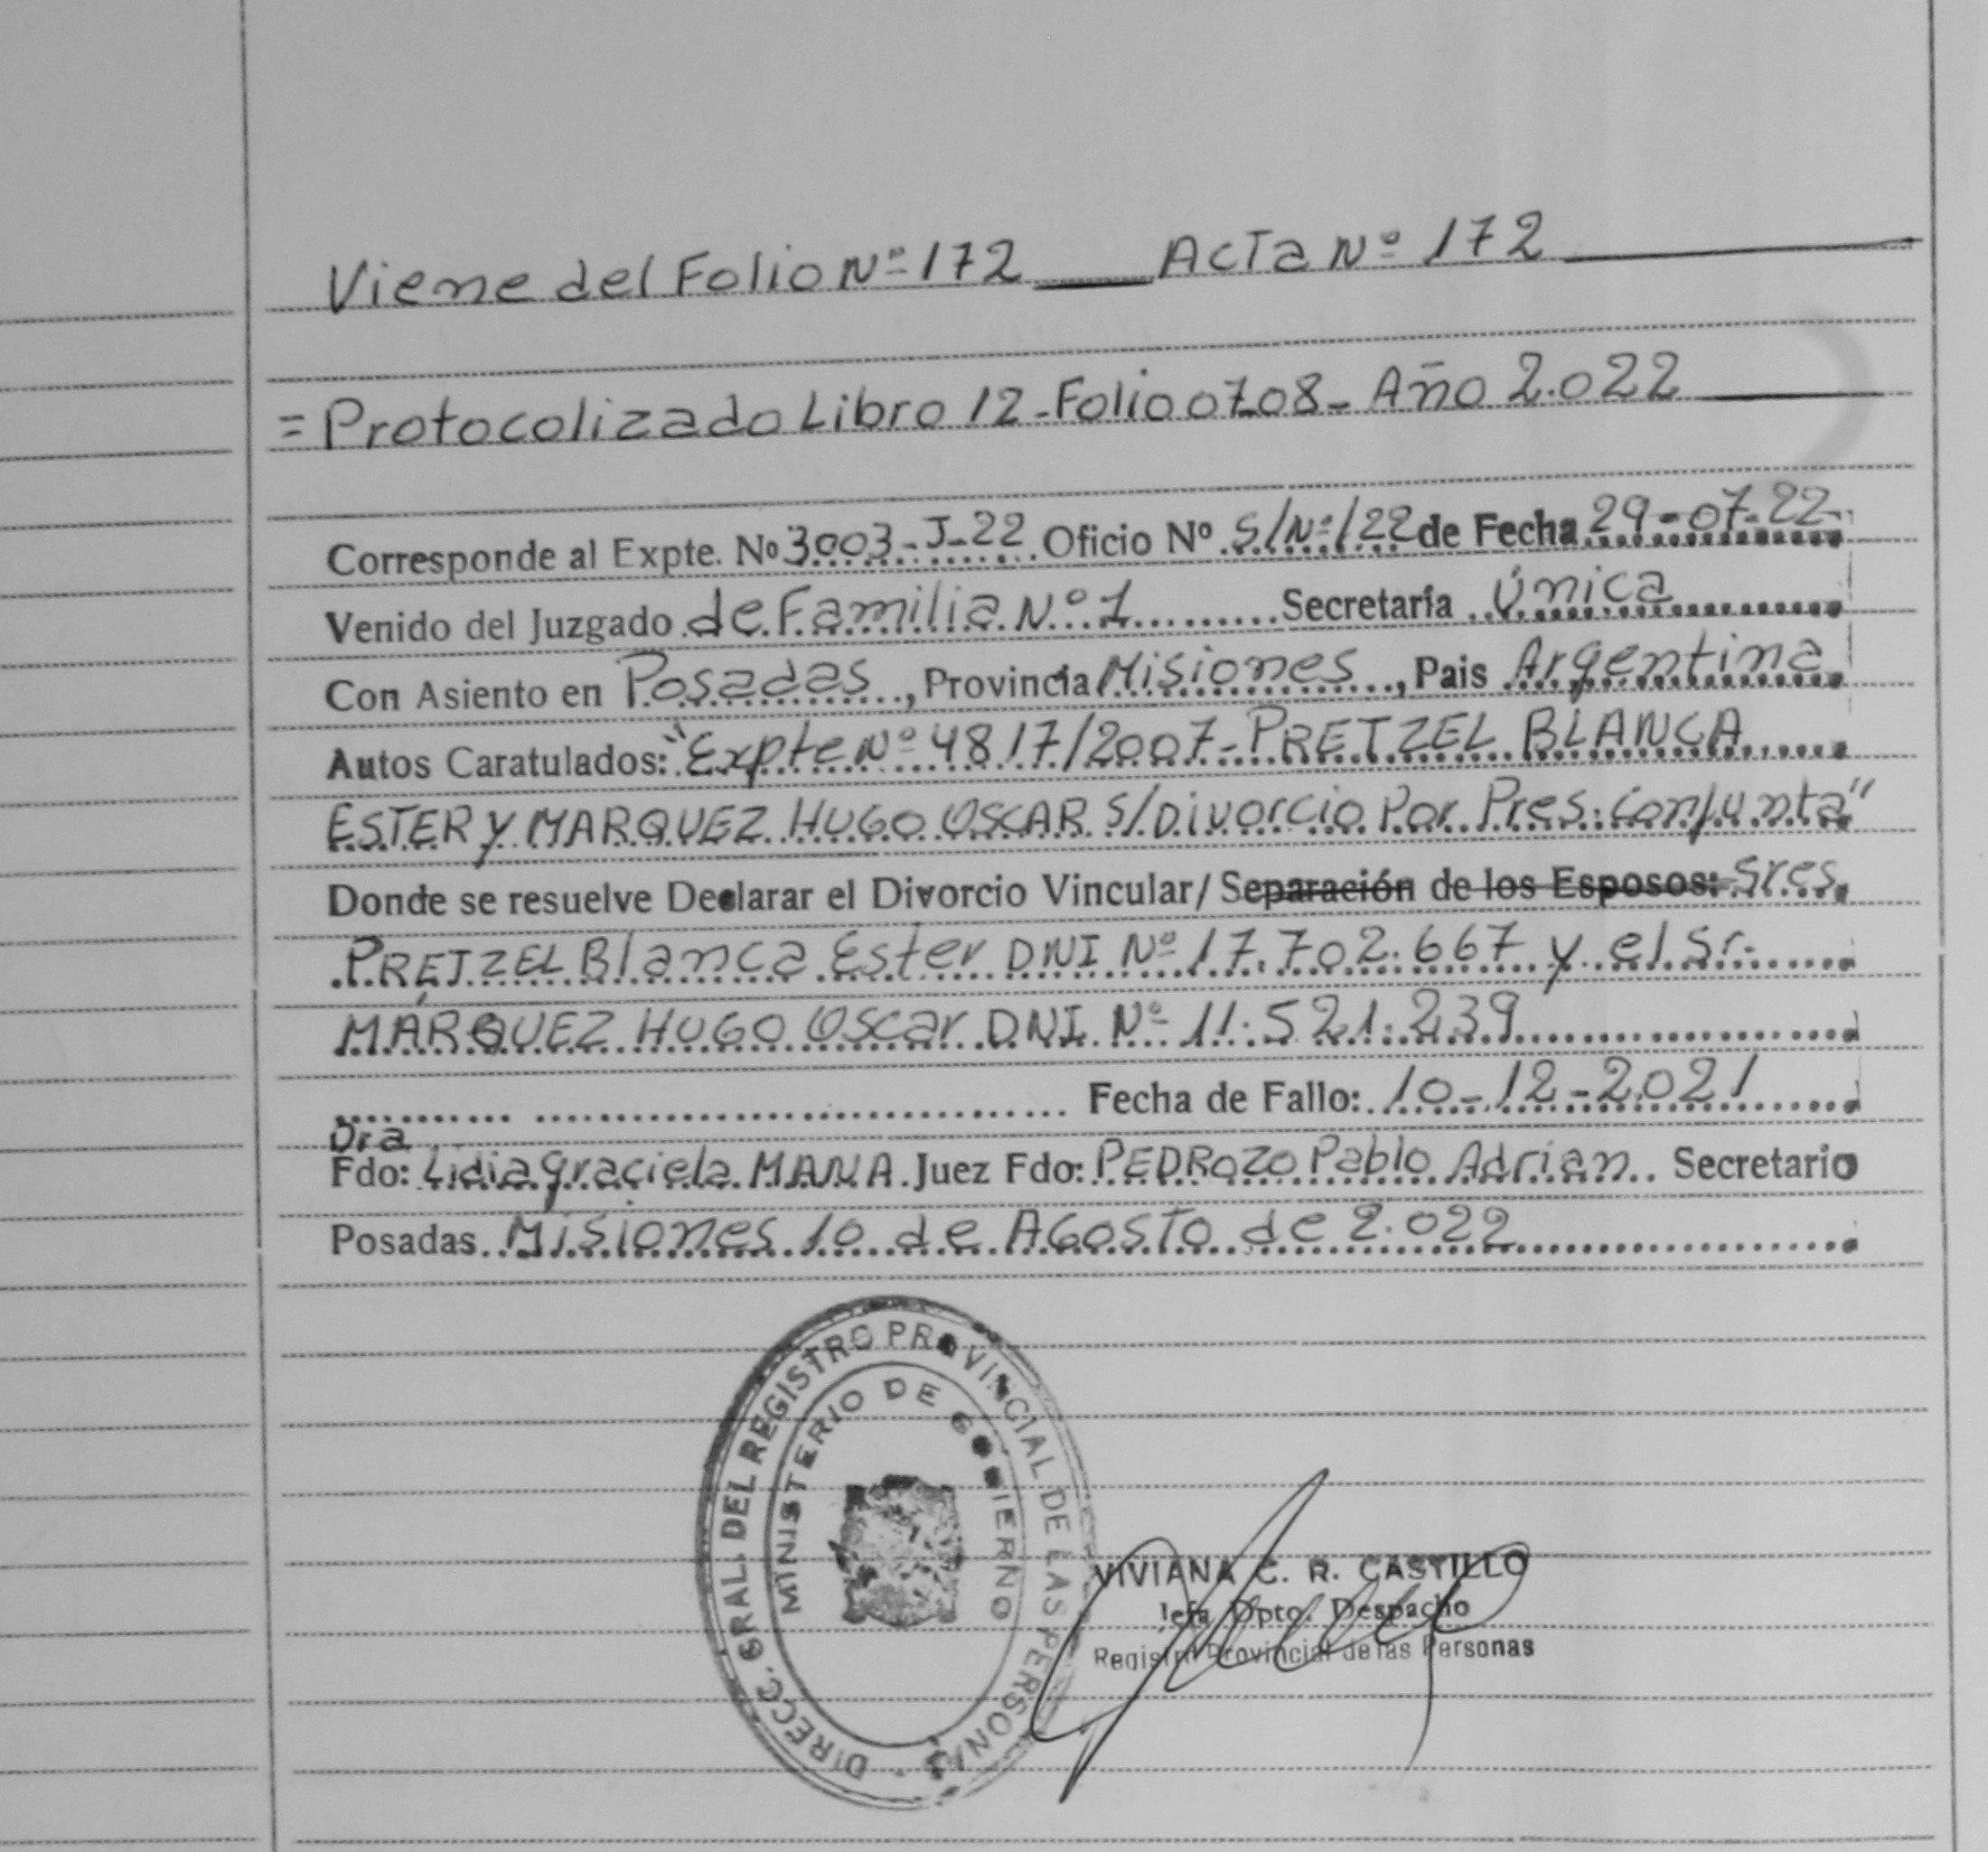 Viene del Folio Nº 172 ___ Acta Nº 172
= Protocolizado Libro 12 - Folio 0708 - Año 2.022
Corresponde al Expte. Nº 3003-J-22. Oficio Nº S/Nº/22 de Fecha 29-07-22
Venido del Juzgado de Familia Nº 1 Secretaría Única
Con Asiento en Posadas, Provincia Misiones, Pais Argentina
Autos Caratulados: "Expte Nº 4817/2007 - PRETZEL BLANCA
ESTER y MARQUEZ HUGO OSCAR S/Divorcio Por Pres. Conjunta"
Donde se resuelve Declarar el Divorcio Vincular/ Separación de los Esposos: Sres.
PRETZEL Blanca Ester DNI Nº 17.702.667 y el Sr.
MÁRQUEZ HUGO Oscar DNI Nº 11.521.239
Fecha de Fallo: 10-12-2021
Dra
Fdo: Lidia Graciela MANA. Juez Fdo: PEDROZO Pablo Adrian. Secretario
Posadas. Misiones 10 de Agosto de 2.022
DIRECC. GRAL. DEL REGISTRO PROVINCIAL DE LAS PERSONAS
MINISTERIO DE GOBIERNO
VIVIANA C. R. CASTILLO
Jefa Dpto. Despacho
Registro Provincial de las Personas